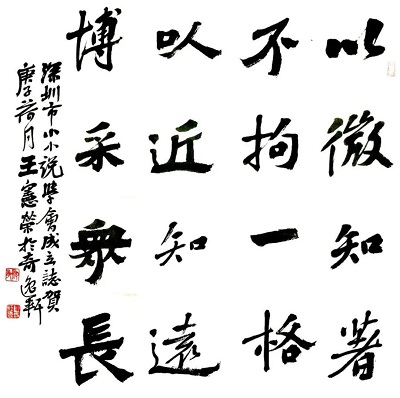 以微知著
不拘一格
以近知遠
博采衆長
深圳市小小说學會成立誌賀
庚子荷月王憲榮於奇逸軒